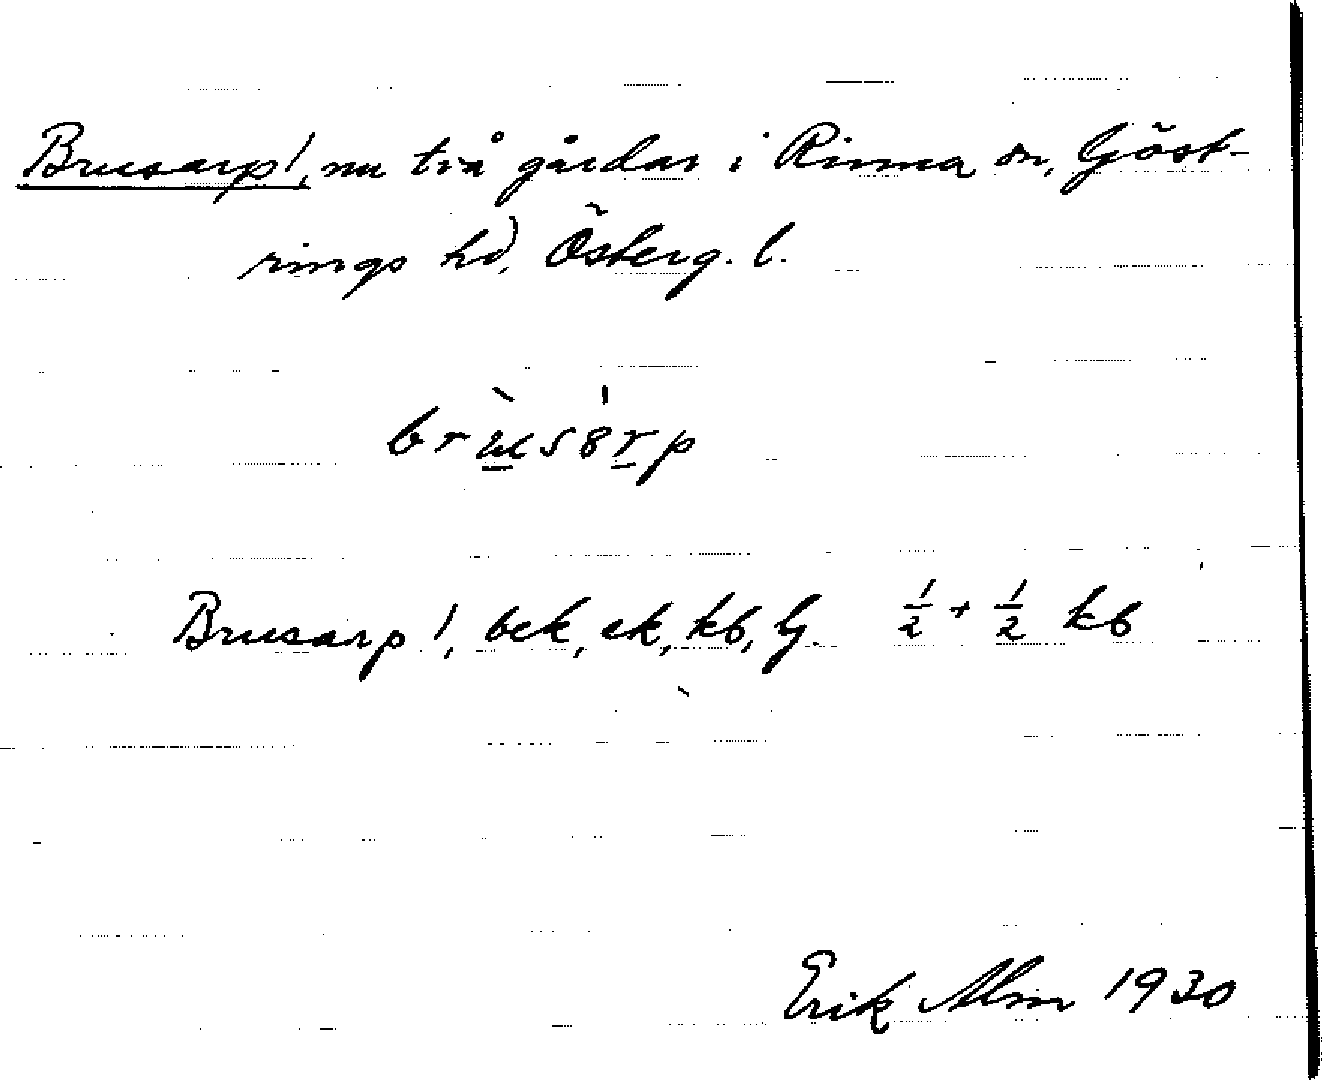 Brusarp!, nu två gårdar i Rinna sn, Göst-
rings hd, Österg. l.
brùsa̍rp
Brusarp!, bek, ek, kb, G. ½ + ½ kb
Erik Alm 1930